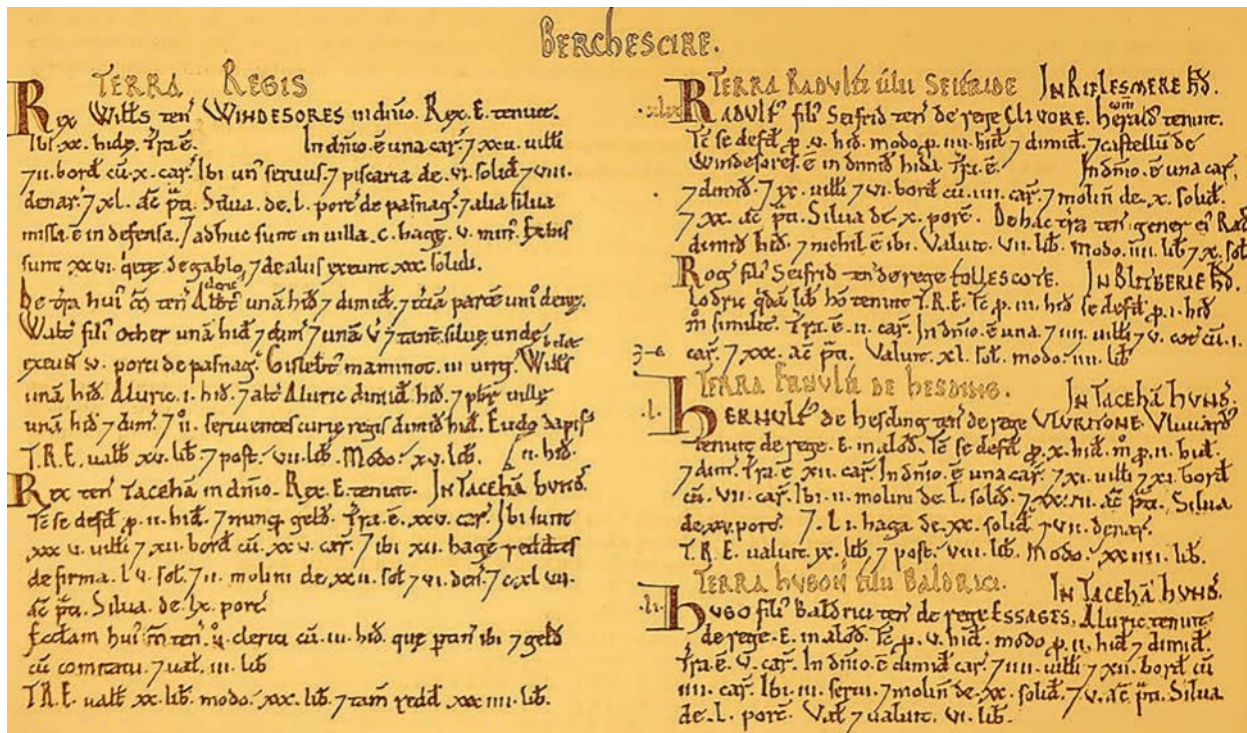 BERCHESCIRE.
TERRA REGIS
Rex Wills ten' WINDESORES in dnio. Rex. E. tenuit.
Ibi. xx. hidę. Tra ē. In dnio. ē una car. 7 xxii. uilli
7 .ii. bord cū. x. car. Ibi un' seruus. 7 piscaria de. vi. solid 7 viii.
denar. 7 xl. ac p̄ta. Silua. de. l. porc' de pasnag'. 7 alia silua
missa. ē in defensa. 7 adhuc sunt in uilla. c. hagę. v. min'. Ex his
sunt xxvi. q'etę de gablo, 7 de aliis exeunt xxx. solidi.
De t'ra hui' m̄ ten' Albt' cleric' unā hid 7 dimid. 7 t'ciā partē uni' denę.
Walt' fili' Other unā hid 7 dim' 7 unā v' 7 tant' siluę unde
exeunt v. porci de pasnag'. Gislebt' maminot. iii virg. Wills
unā hid. Aluric. i. hid. 7 alt' Aluric dimid hid. 7 pbr uillę
unā hid 7 dim'. 7 ii. seruientes curię regis dimid hid. Eudo dapif'
T.R.E. ualb xv. lib. 7 post. vii. lib. Modo. xv. lib. ii. hid.
Rex ten' TACEHĀ in dnio. Rex. E. tenuit. IN TACEHĀ HUND.
Tc̄ se defd p. ii. hid. 7 nunq geld. Tra. ē. xxv. car. Ibi sunt
xxxv. uilli 7 xii. bord cū xxv. car. 7 ibi xii. hagę reddtes
de firma. lv. sol. 7 ii. molini de. xxii. sol 7 vi. den'. 7 cxlvii.
ac p̄ta. Silua. de. lx. porc'
Ecclam hui' m̄ ten'. ii. clerici cū. iii. hid. quę ptin' ibi 7 geld
cū comitatu. 7 ual. iii. lib
T.R.E. ualb xx. lib. modo. xxx. lib. 7 tam' redd. xxxiiii. lib.
TERRA RADULFI filii SEIFRIDE IN RIPLESMERE HD.
.xlix. RADULF' fili' Seifrid ten' de rege CLIVORE. herald com tenuit.
Tc̄ se defd p. v. hid. modo p. iiii. hid 7 dimid. 7 castellū de
Windesores. ē in dimid hida. Tra. ē. In dnio. ē una car,
7 dimid. 7 ix. uilli 7 vi. bord cū. iiii. car. 7 molin' de. x. solid.
7 xx. ac p̄ta. Silua de. x. porc'. De hac t'ra ten' gener ei' Rad
dimid hid. 7 nichil ē ibi. Valuit. vii. lib. modo. iiii. lib 7 x. sol
Rog' fili' Seifrid ten' de rege COLLESCOTE. IN BLITBERIE HD.
Lodric q̇dā lib hō tenuit T.R.E. Tc̄ p. iii. hid se defd p. i. hid
m̊ similit'. Tra. ē. ii. car. In dnio. ē una. 7 iiii. uilli 7 v. cot' cū. i.
car. 7 xxx. ac p̄ta. Valuit. xl. sol. modo. iiii. lib
TERRA ERNULFI DE HESDING. IN TACEHĀ HUND.
.l. HERNULF' de hesding ten' de rege VLVRITONE. Vluuard
tenuit de rege. E. in alod. Tc̄ se defd p. x. hid. m̊ p. ii. hid.
7 dim'. Tra. ē xii. car. In dnio. ē una car. 7 xi. uilli 7 xi. bord
cū. vii. car. Ibi. ii. molini de. l. solid. 7 xxvii. ac p̄ta. Silua
de. xxv. porc'. 7 .li. haga de. xx. solid. 7 vii. denar.
T.R.E. ualuit. ix. lib. 7 post. viii. lib. Modo. xxiiii. lib.
TERRA HUGON' filii BALDRICI. IN TACEHĀ HUND.
.li. HUGO fili' Baldrici ten' de rege ESSAGES. Aluric tenuit
de rege. E. in alod. Tc̄ p. v. hid. modo p. ii. hid 7 dimid.
Tra ē. v. car. In dnio. ē dimid car. 7 iiii. uilli 7 xii. bord cū
iiii. car. Ibi. iii. serui. 7 molin' de. xx. solid. 7 v. ac p̄ta. Silua
de. l. porc'. Val 7 ualuit. vi. lib.